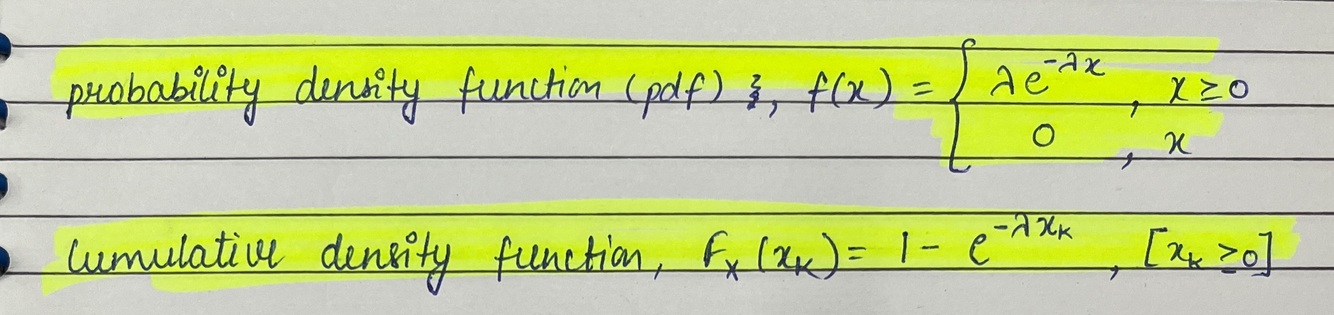 probability density function (pdf) }, f(x) = { λe^{-λx} , x ≥ 0
0 , x
Cumulative density function, F_X (x_k) = 1 - e^{-λx_k} , [x_k ≥ 0]